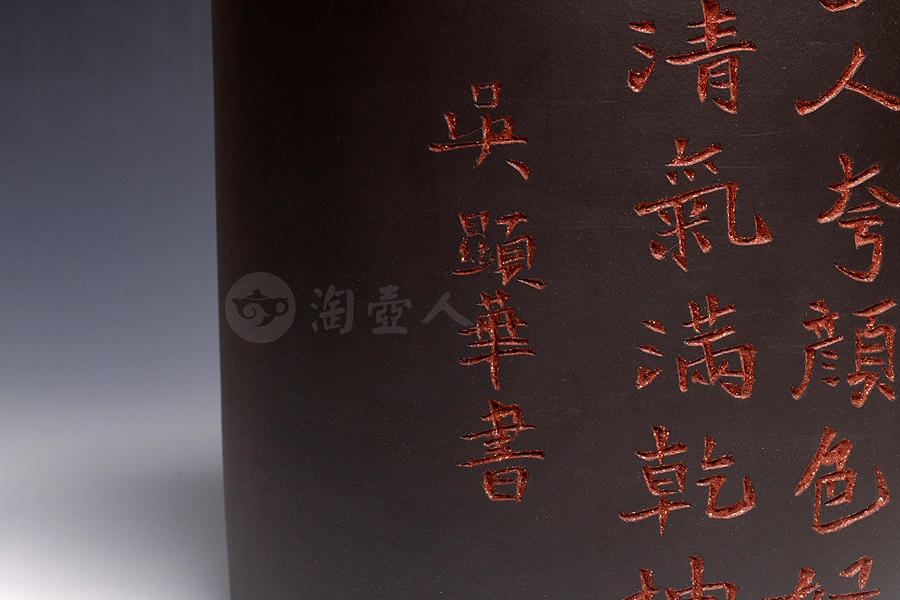 人夸顔色好
清氣滿乾坤
吳顯華書
淘壺人